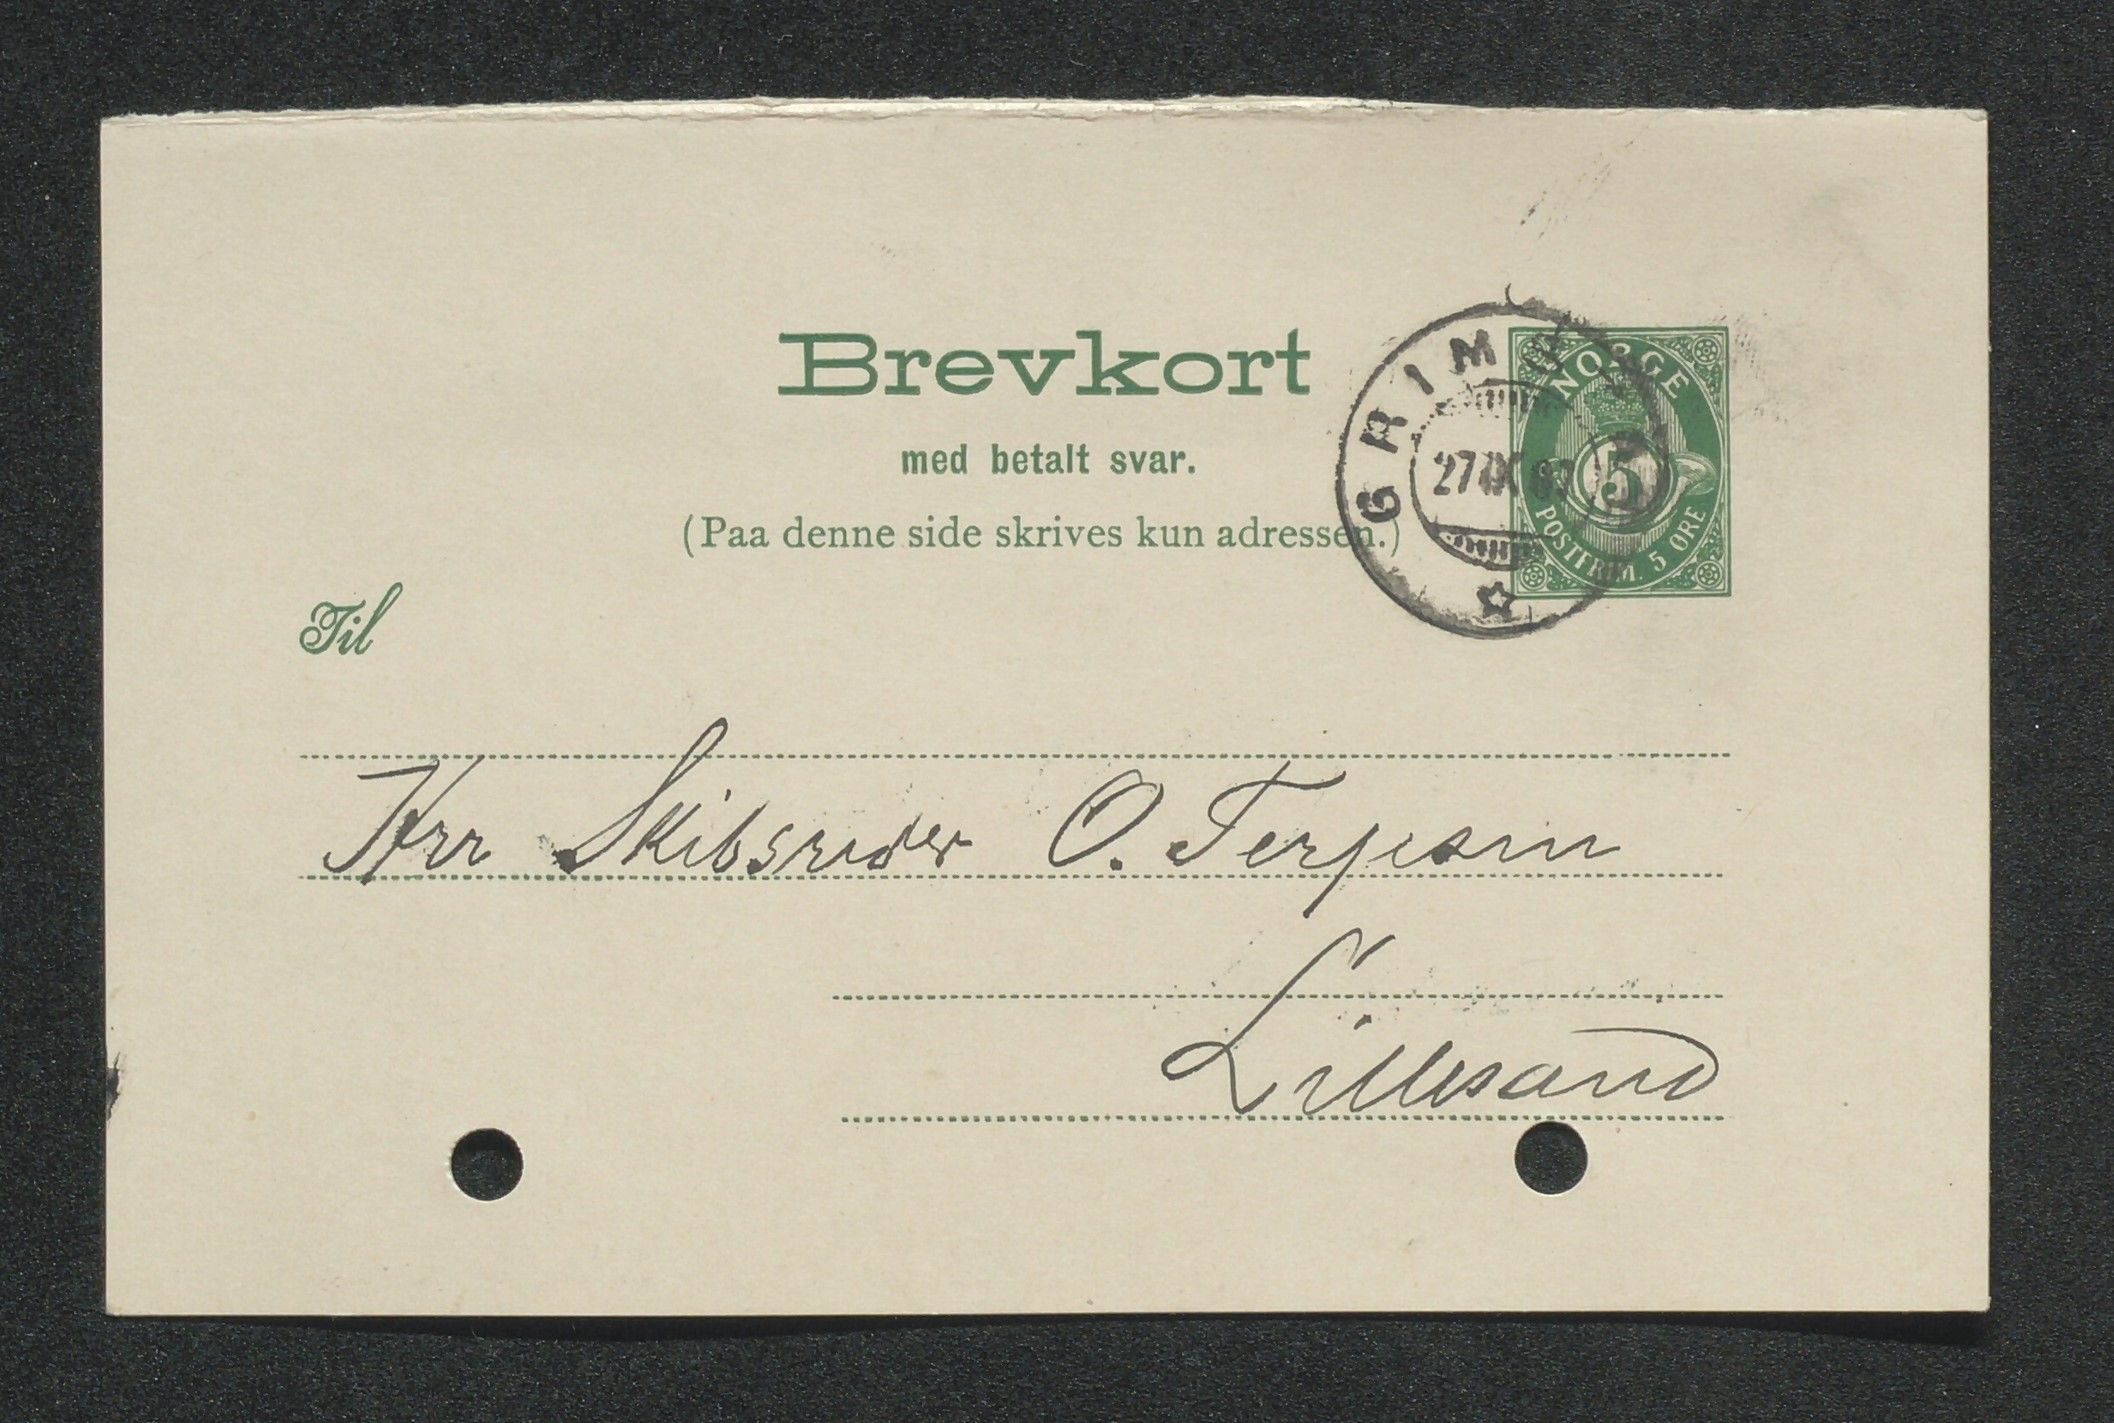 Brevkort
med betalt svar.
(Paa denne side skrives kun adressen.)
GRIMSTAD
27 IX 07
NORGE
5
POSTFRIM. 5 ØRE
Til
Herr Skibsreder O. Terjesen
Lillesand